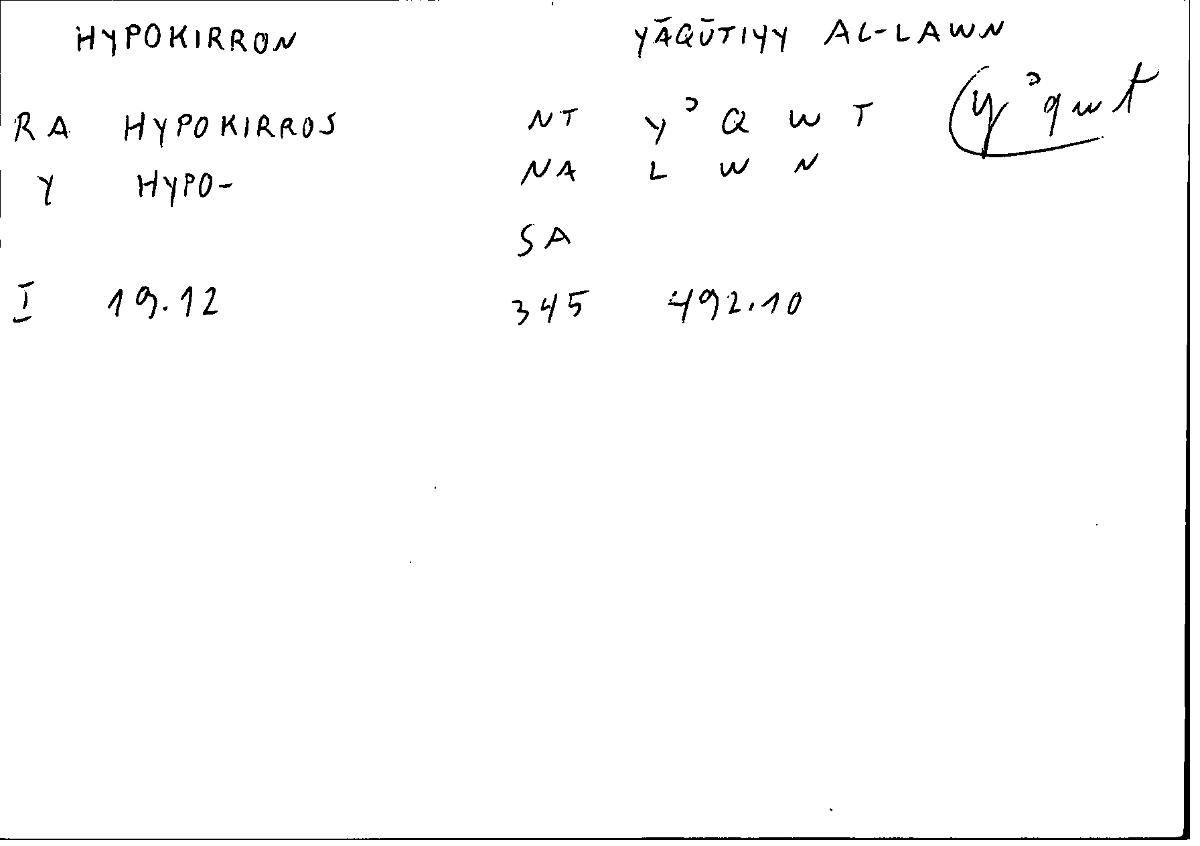 HYPOKIRRON YĀQŪTIYY AL-LAWN
RA HYPOKIRROS NT Y ʾ Q W T yʾqwt
Y HYPO- NA L W N
SA
I 19.12 345 492.10